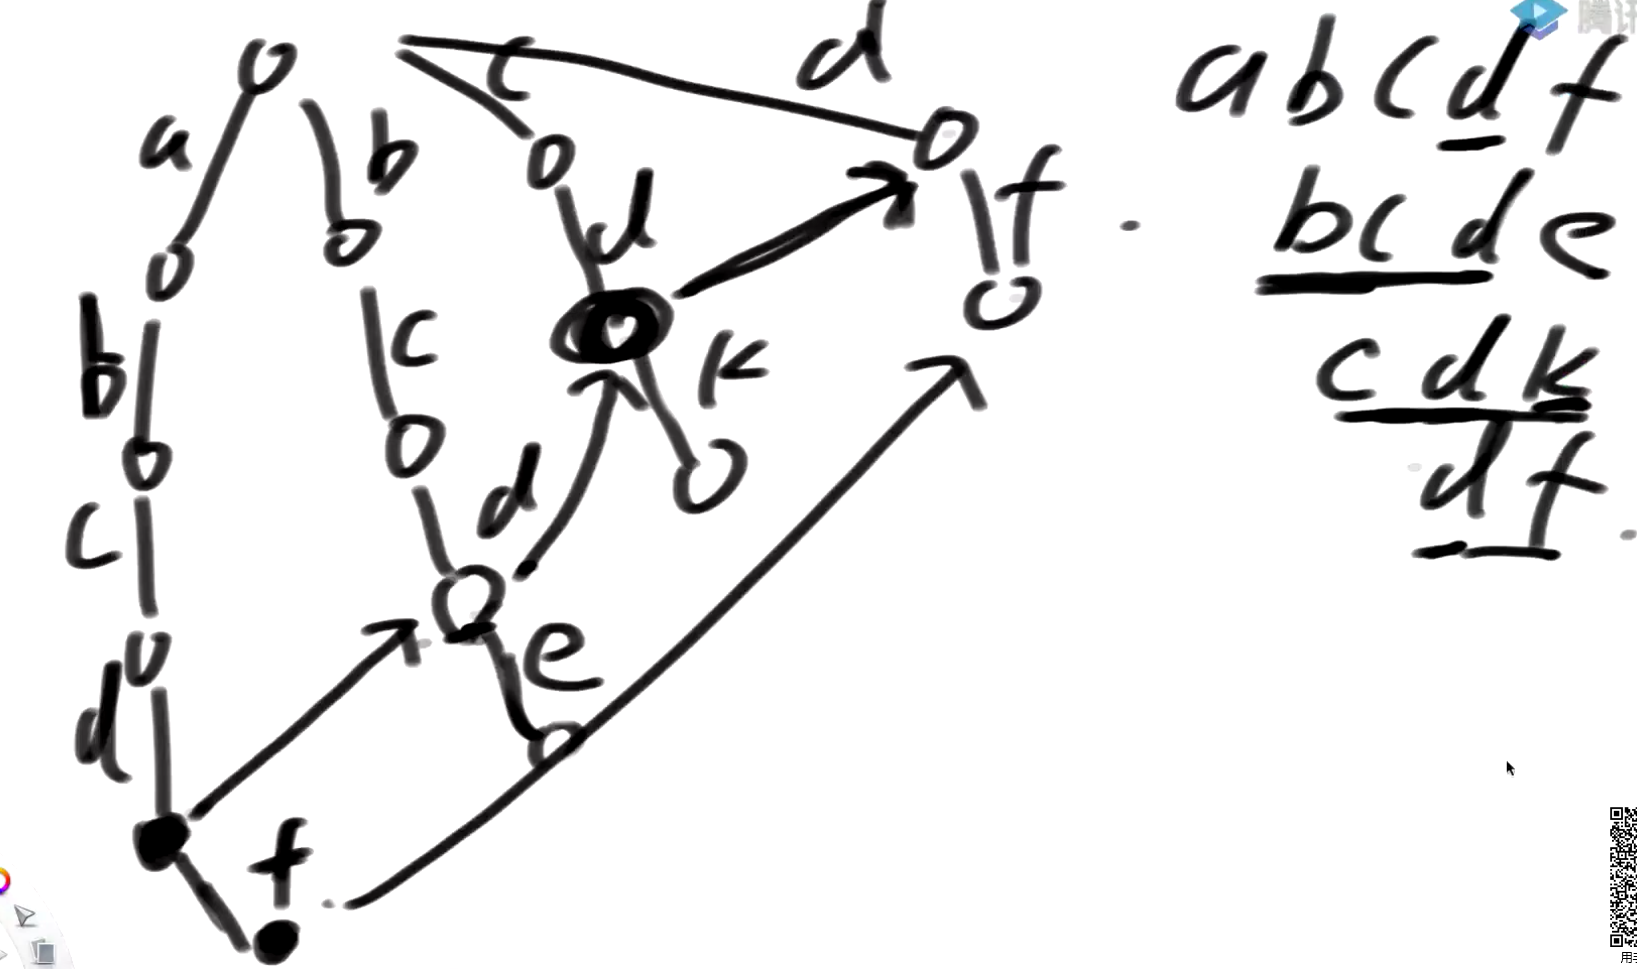 abcdf
bcde
cdk
df
a
b
c
d
f
b
c
d
e
c
d
k
d
f
腾讯